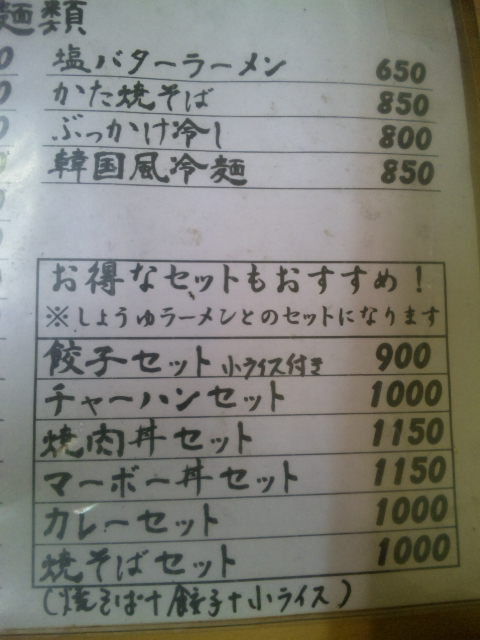 麺類
塩バターラーメン 650
かた焼そば 850
ぶっかけ冷し 800
韓国風冷麺 850
お得なセットもおすすめ!
※しょうゆラーメンとのセットになります
餃子セット 小ライス付き 900
チャーハンセット 1000
焼肉丼セット 1150
マーボー丼セット 1150
カレーセット 1000
焼そばセット 1000
(焼そば+餃子+小ライス)